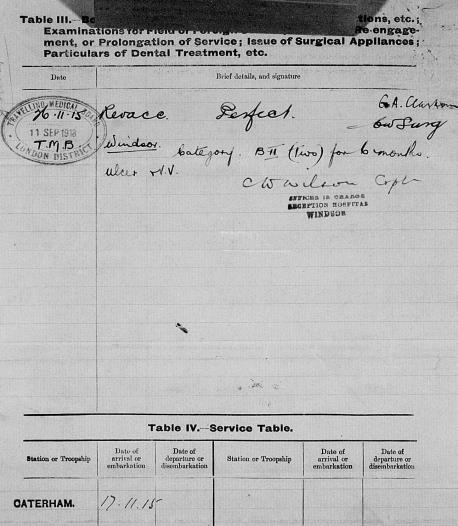 Table III.—Bo tions, etc.;
Examinations for Field or Foreign Re-engage-
ment, or Prolongation of Service; Issue of Surgical Appliances;
Particulars of Dental Treatment, etc.
Date Brief details, and signature
26.11.15 Revacc. Perfect. G.A.
Surg
TRAVELLING MEDICAL BOARD
11 SEP 1918
T.M.B.
LONDON DISTRICT
Windsor. Category. B II (Two) for 6 months.
Ulcer V.V.
C W Wilson Capt
OFFICER IN CHARGE
RECEPTION HOSPITAL
WINDSOR
Table IV.—Service Table.
Station or Troopship Date of arrival or embarkation Date of departure or disembarkation Station or Troopship Date of arrival or embarkation Date of departure or disembarkation
CATERHAM. 17.11.15